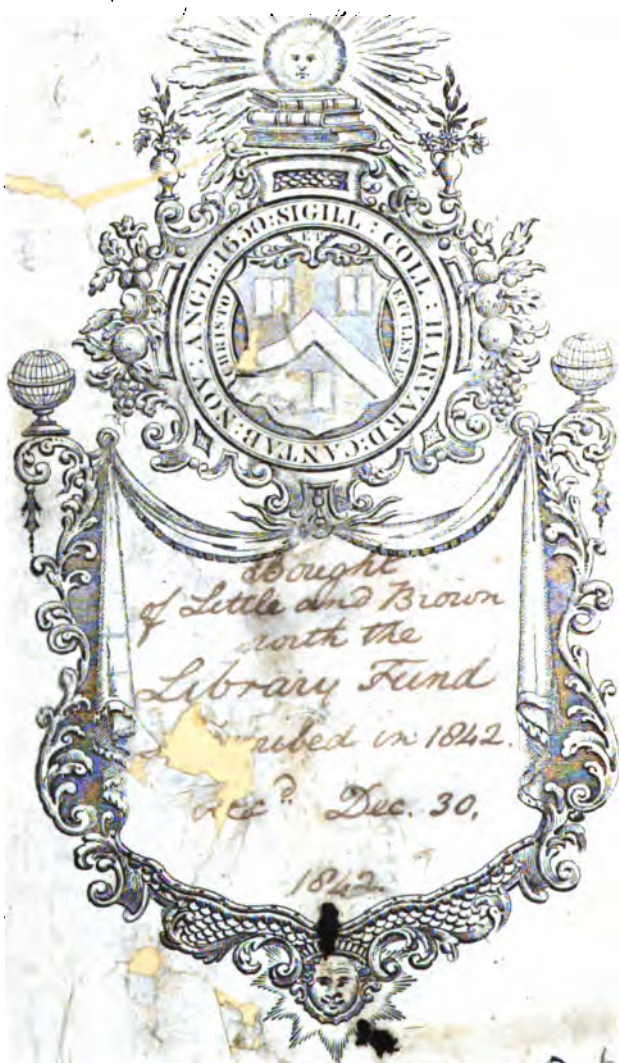 SIGILL : COLL : HARVARD : CANTAB : NOV : ANGL : 1650 :
ET
CHRISTO
ECCLESIÆ
Bought
of Little and Brown
with the
Library Fund
in 1842.
Rec^d. Dec. 30,
1842.